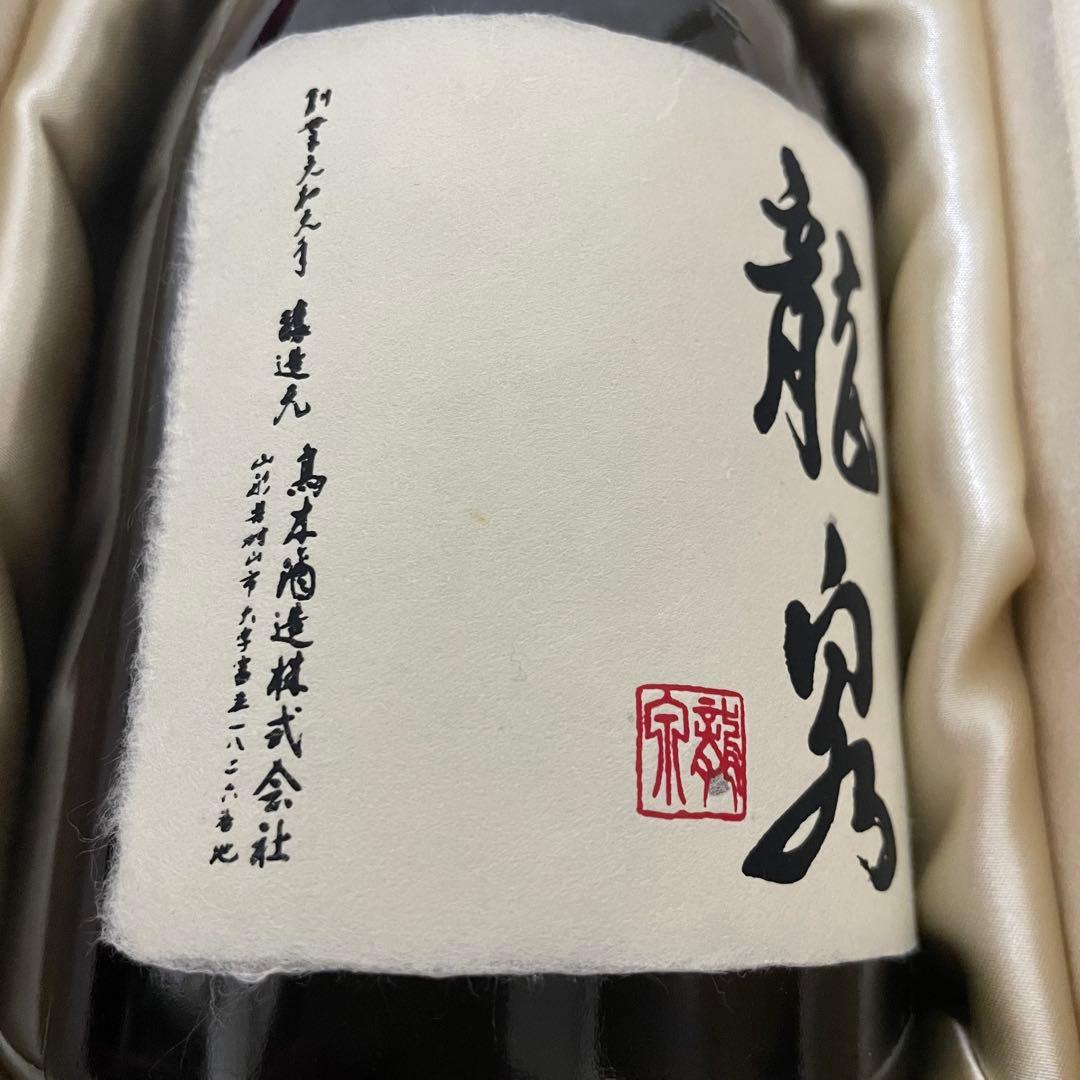 龍泉
龍泉
創業元和元年 醸造元 高木酒造株式会社
山形県村山市大字富並一八二六番地